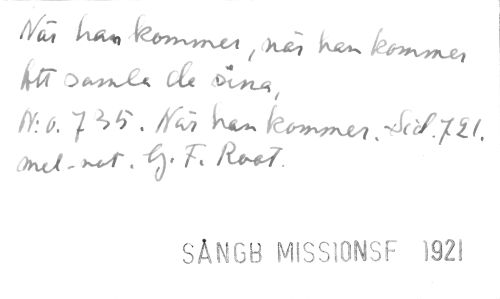 När han kommer, när han kommer
Att samla de sina,
N:o. 735. När han kommer. Sid. 721.
mel-not. G. F. Root.
SÅNGB MISSIONSF 1921